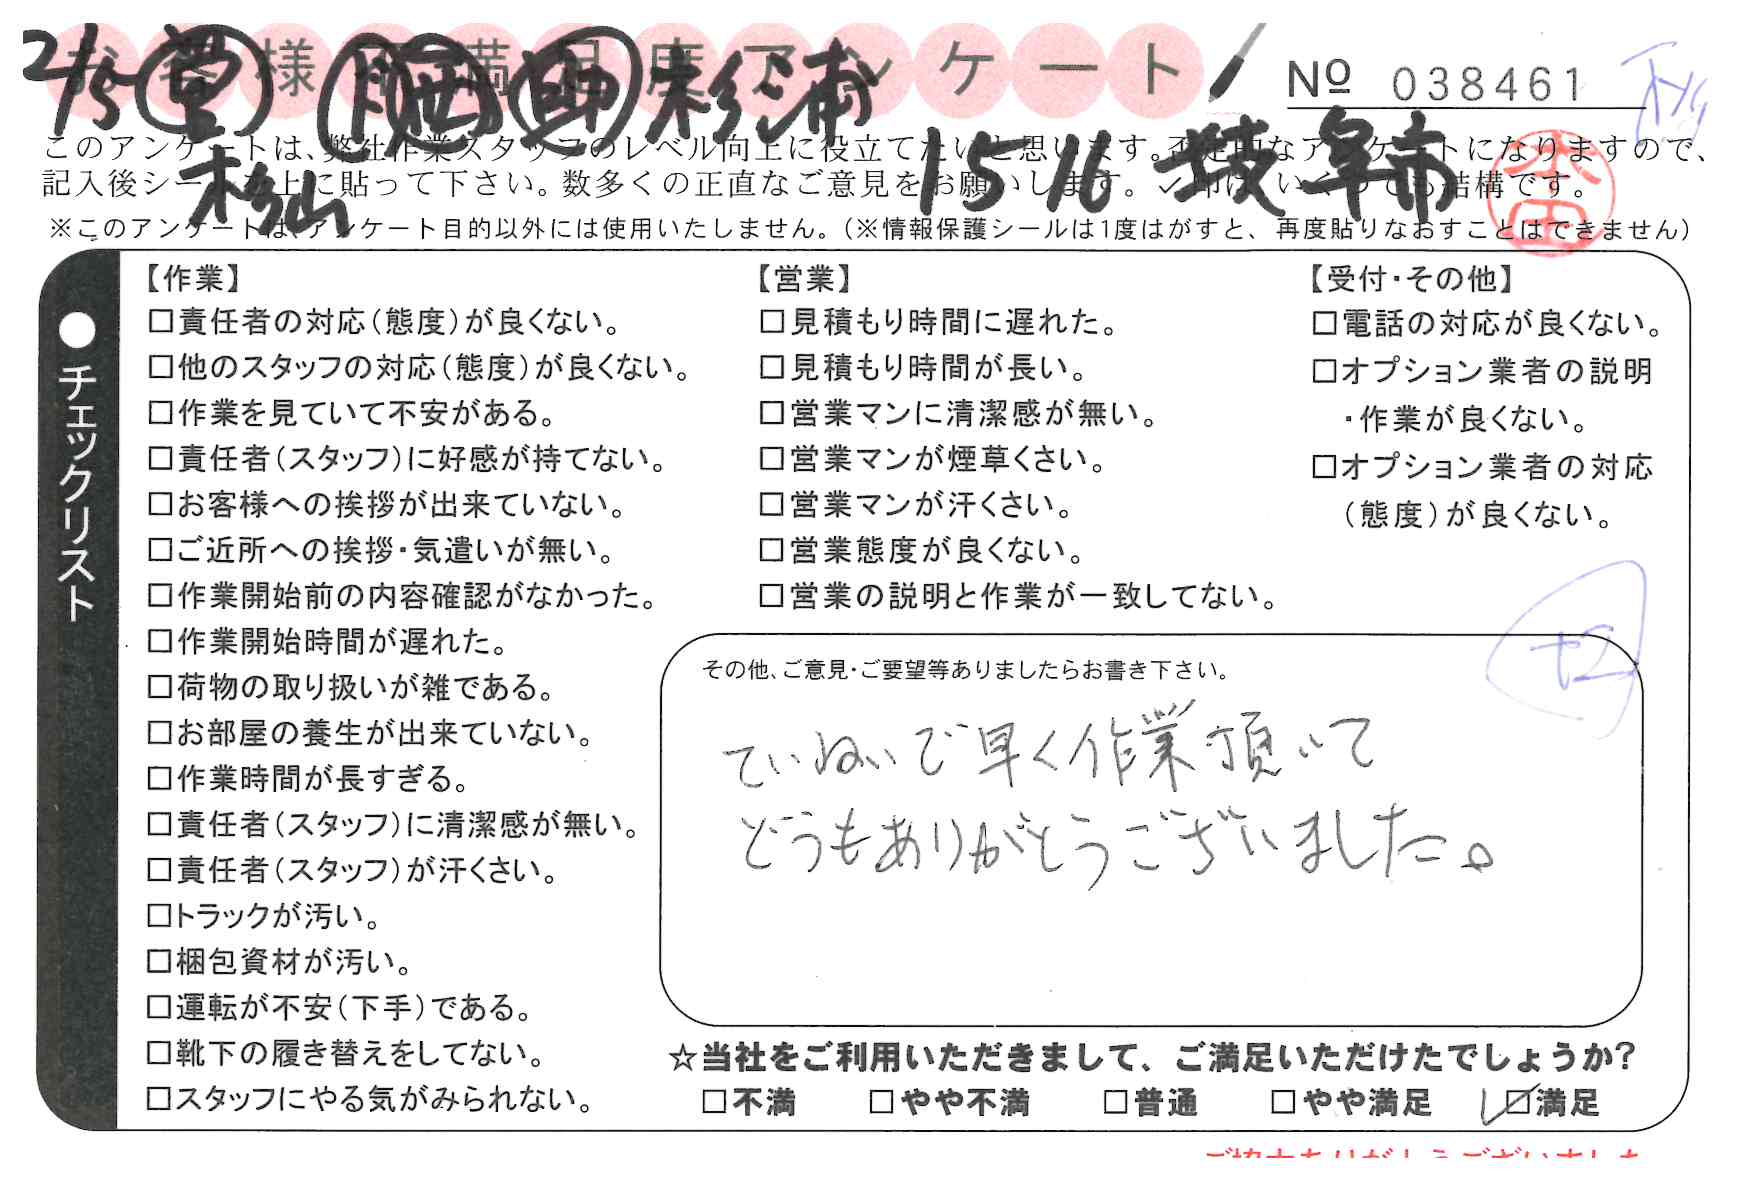 お客様不満足度アンケート
2/5 堂 西 杉浦
№ 038461
このアンケートは、弊社作業スタッフのレベル向上に役立てたいと思います。否定的なアンケートになりますので、
記入後シールを上に貼って下さい。数多くの正直なご意見をお願いします。✓印は、いくつでも結構です。
杉山 1516 岐阜市
本田
※このアンケートは、アンケート目的以外には使用いたしません。（※情報保護シールは1度はがすと、再度貼りなおすことはできません）
●チェックリスト
【作業】
□責任者の対応（態度）が良くない。
□他のスタッフの対応（態度）が良くない。
□作業を見ていて不安がある。
□責任者（スタッフ）に好感が持てない。
□お客様への挨拶が出来ていない。
□ご近所への挨拶・気遣いが無い。
□作業開始前の内容確認がなかった。
□作業開始時間が遅れた。
□荷物の取り扱いが雑である。
□お部屋の養生が出来ていない。
□作業時間が長すぎる。
□責任者（スタッフ）に清潔感が無い。
□責任者（スタッフ）が汗くさい。
□トラックが汚い。
□梱包資材が汚い。
□運転が不安（下手）である。
□靴下の履き替えをしてない。
□スタッフにやる気がみられない。
【営業】
□見積もり時間に遅れた。
□見積もり時間が長い。
□営業マンに清潔感が無い。
□営業マンが煙草くさい。
□営業マンが汗くさい。
□営業態度が良くない。
□営業の説明と作業が一致してない。
【受付・その他】
□電話の対応が良くない。
□オプション業者の説明
・作業が良くない。
□オプション業者の対応
（態度）が良くない。
その他、ご意見・ご要望等ありましたらお書き下さい。
ていねいで早く作業頂いて
どうもありがとうございました。
☆当社をご利用いただきまして、ご満足いただけたでしょうか?
□不満 □やや不満 □普通 □やや満足 ☑満足
ご協力ありがとうございました